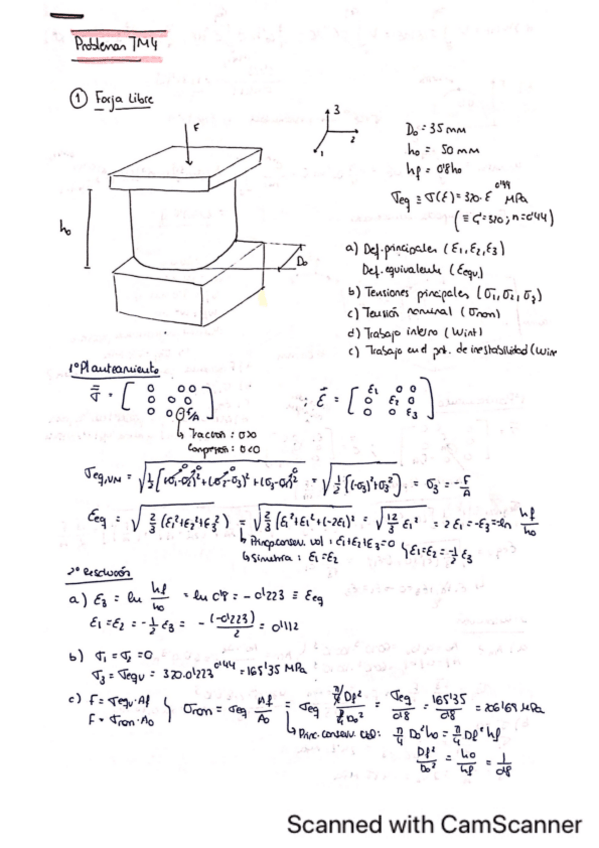 Problemas TM4
① Forja Libre
F
3
2
1
h₀
D₀
D₀ = 35 mm
h₀ = 50 mm
hf = 0'8h₀
σeq ≡ σ(ε) = 320·ε^0'44 MPa
(≡ C=320; n=0'44)
a) Def. principales (ε₁, ε₂, ε₃)
Def. equivalente (εequ.)
b) Tensiones principales (σ₁, σ₂, σ₃)
c) Tensión nominal (σnon)
d) Trabajo interno (Wint)
e) Trabajo en el pnt. de inestabilidad (Wine
1º Planteamiento
σ = [ 0 0 0
0 0 0
0 0 -F/A ]
; ε = [ ε₁ 0 0
0 ε₂ 0
0 0 ε₃ ]
↳ Traccion: σ>0
Compresión: σ<0
σeq,VM = √(1/2 [(σ₁-σ₂)² + (σ₂-σ₃)² + (σ₃-σ₁)²]) = √(1/2 [(-σ₃)² + σ₃²]) = σ₃ = -F/A
εeq = √(2/3 (ε₁²+ε₂²+ε₃²)) = √(2/3 (ε₁²+ε₁²+(-2ε₁)²)) = √(12/3 ε₁²) = 2ε₁ = -ε₃ = ln hf/h₀
↳ Princp conserv. vol: ε₁+ε₂+ε₃=0
↳ Simetria: ε₁=ε₂ } ε₁=ε₂ = -1/2 ε₃
2º Resolución
a) ε₃ = ln hf/h₀ = ln 0'8 = -0'223 ≡ εeq
ε₁ = ε₂ = -1/2 ε₃ = - (-0'223)/2 = 0'112
b) σ₁ = σ₂ = 0
σ₃ = σequ = 320·0'223^0'44 = 165'35 MPa
c) F = σequ·Af
F = σnon·A₀ } σnon = σeq Af/A₀ = σeq (π/4 Df²)/(π/4 D₀²) = σeq/0'8 = 165'35/0'8 = 206'69 MPa
↳ Princ. conserv. vol: π/4 D₀² h₀ = π/4 Df² hf
Df²/D₀² = h₀/hf = 1/0'8
Scanned with CamScanner